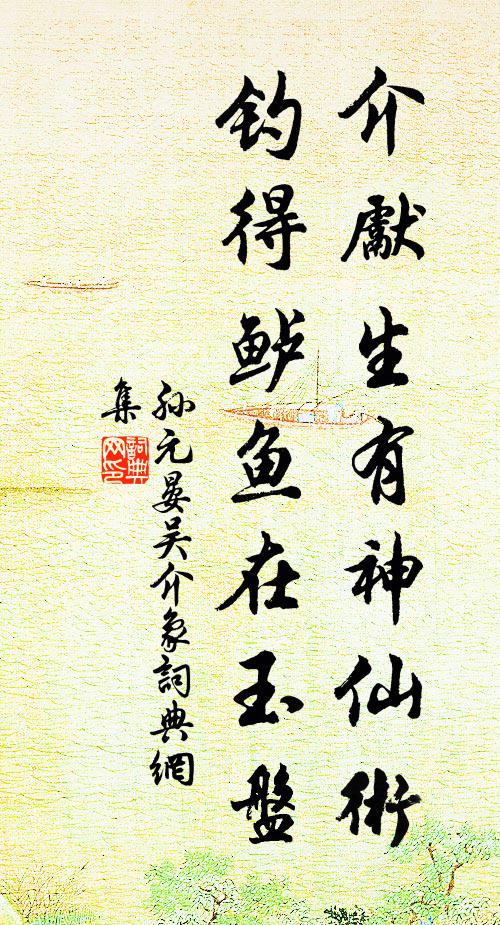 介獻生有神仙術
钓得鲈鱼在玉盤
孙元晏吴介象詞典網
集
詞典网印